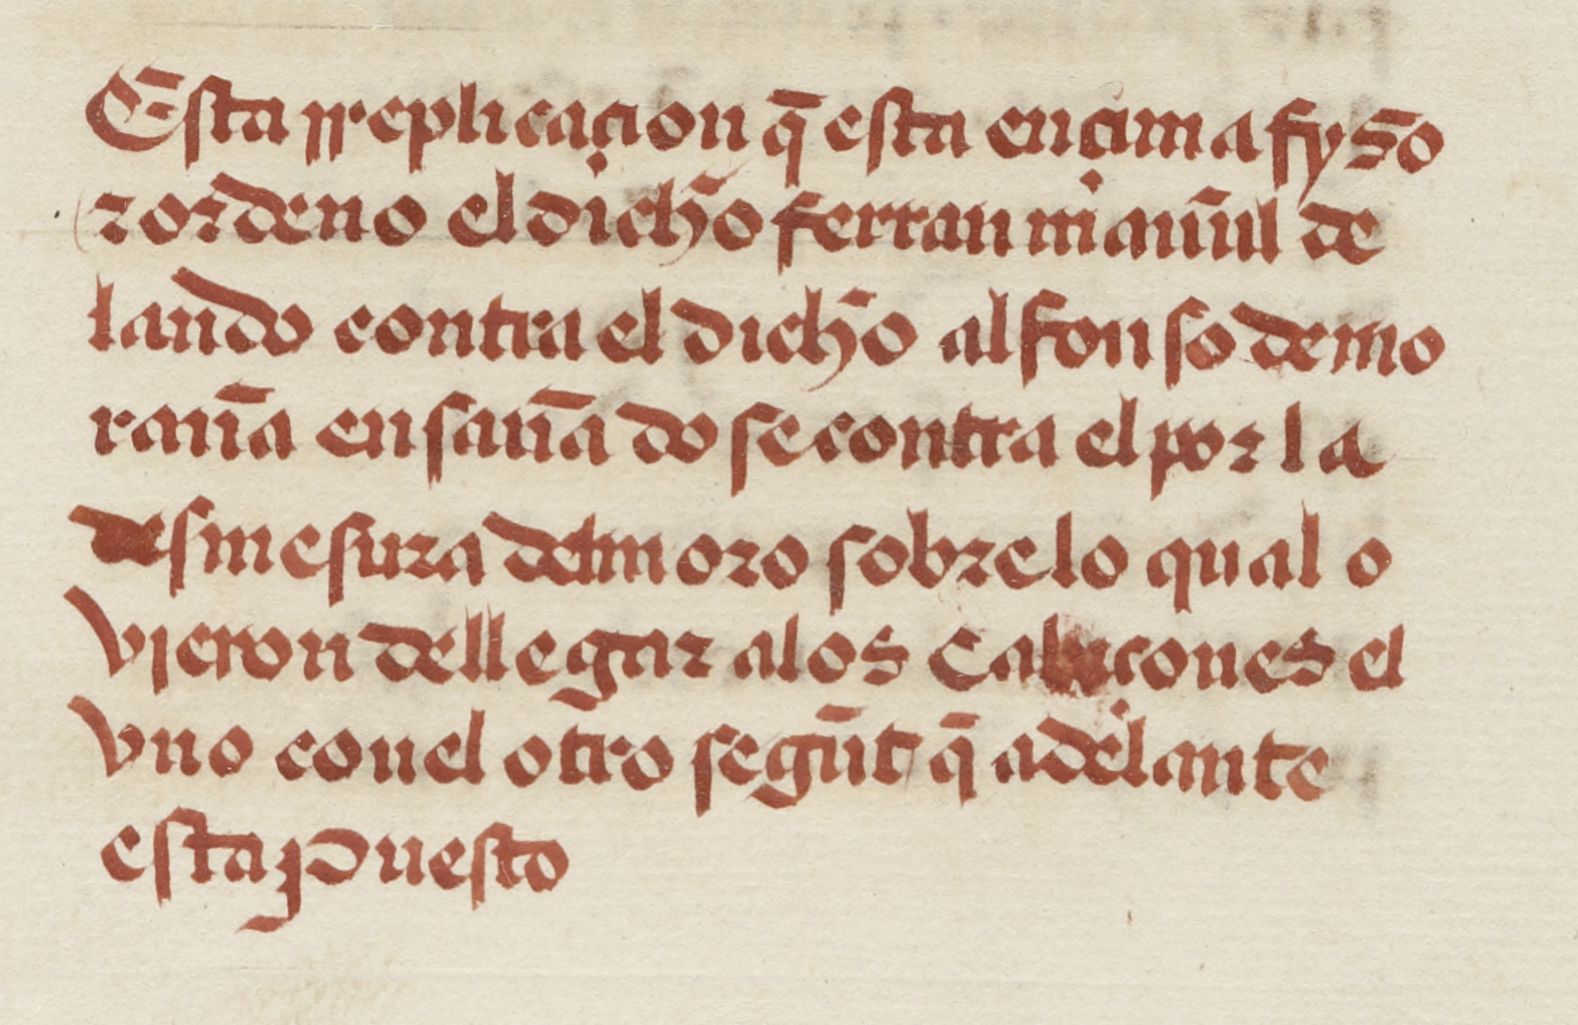 Esta rreplicaçion q̃ esta ençima fyso
τ ordeno el dicħo ferran mᷤanũul de
lando contra el dicħo alfonso de mo
rana ensana̅do se contra el por la
desmesura del moro sobre lo qual o
vieron de llegar a los cabicones el
vno con el otro segũt q̃ adelante
esta puesto